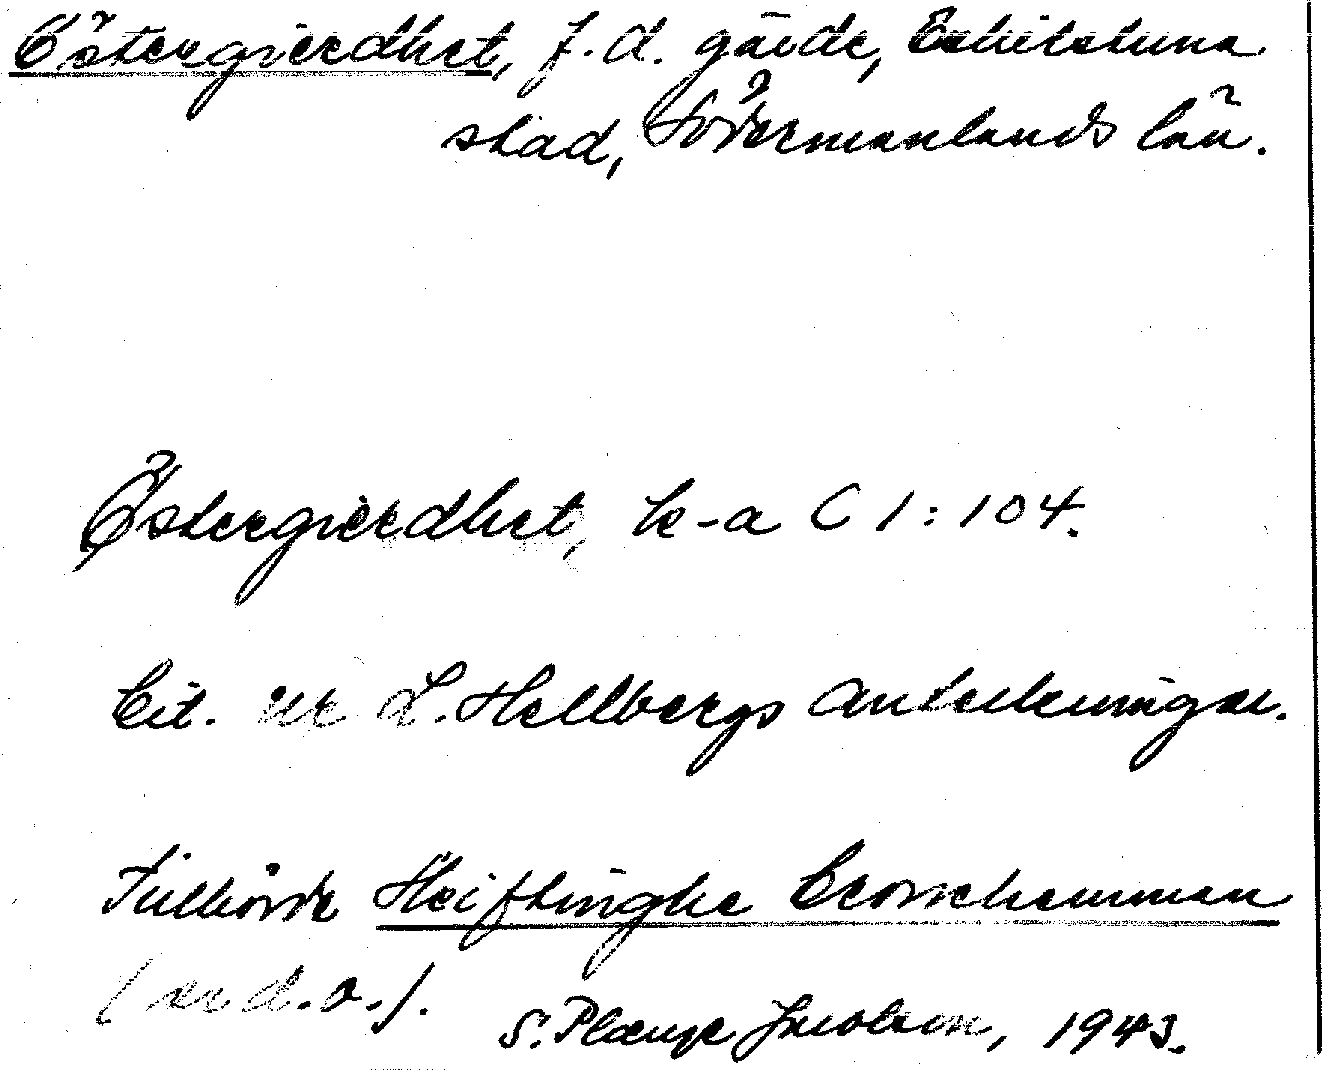 Östergierdhet, f.d. gärde, Eskilstuna
stad, Södermanlands län.
Östergierdhet, k-a C 1:104.
Cit. ur L. Hellbergs anteckningar.
Tillhörde Heiftinghe Cronehemman
(se d.o.).
S. Plænge Jacobson, 1943.